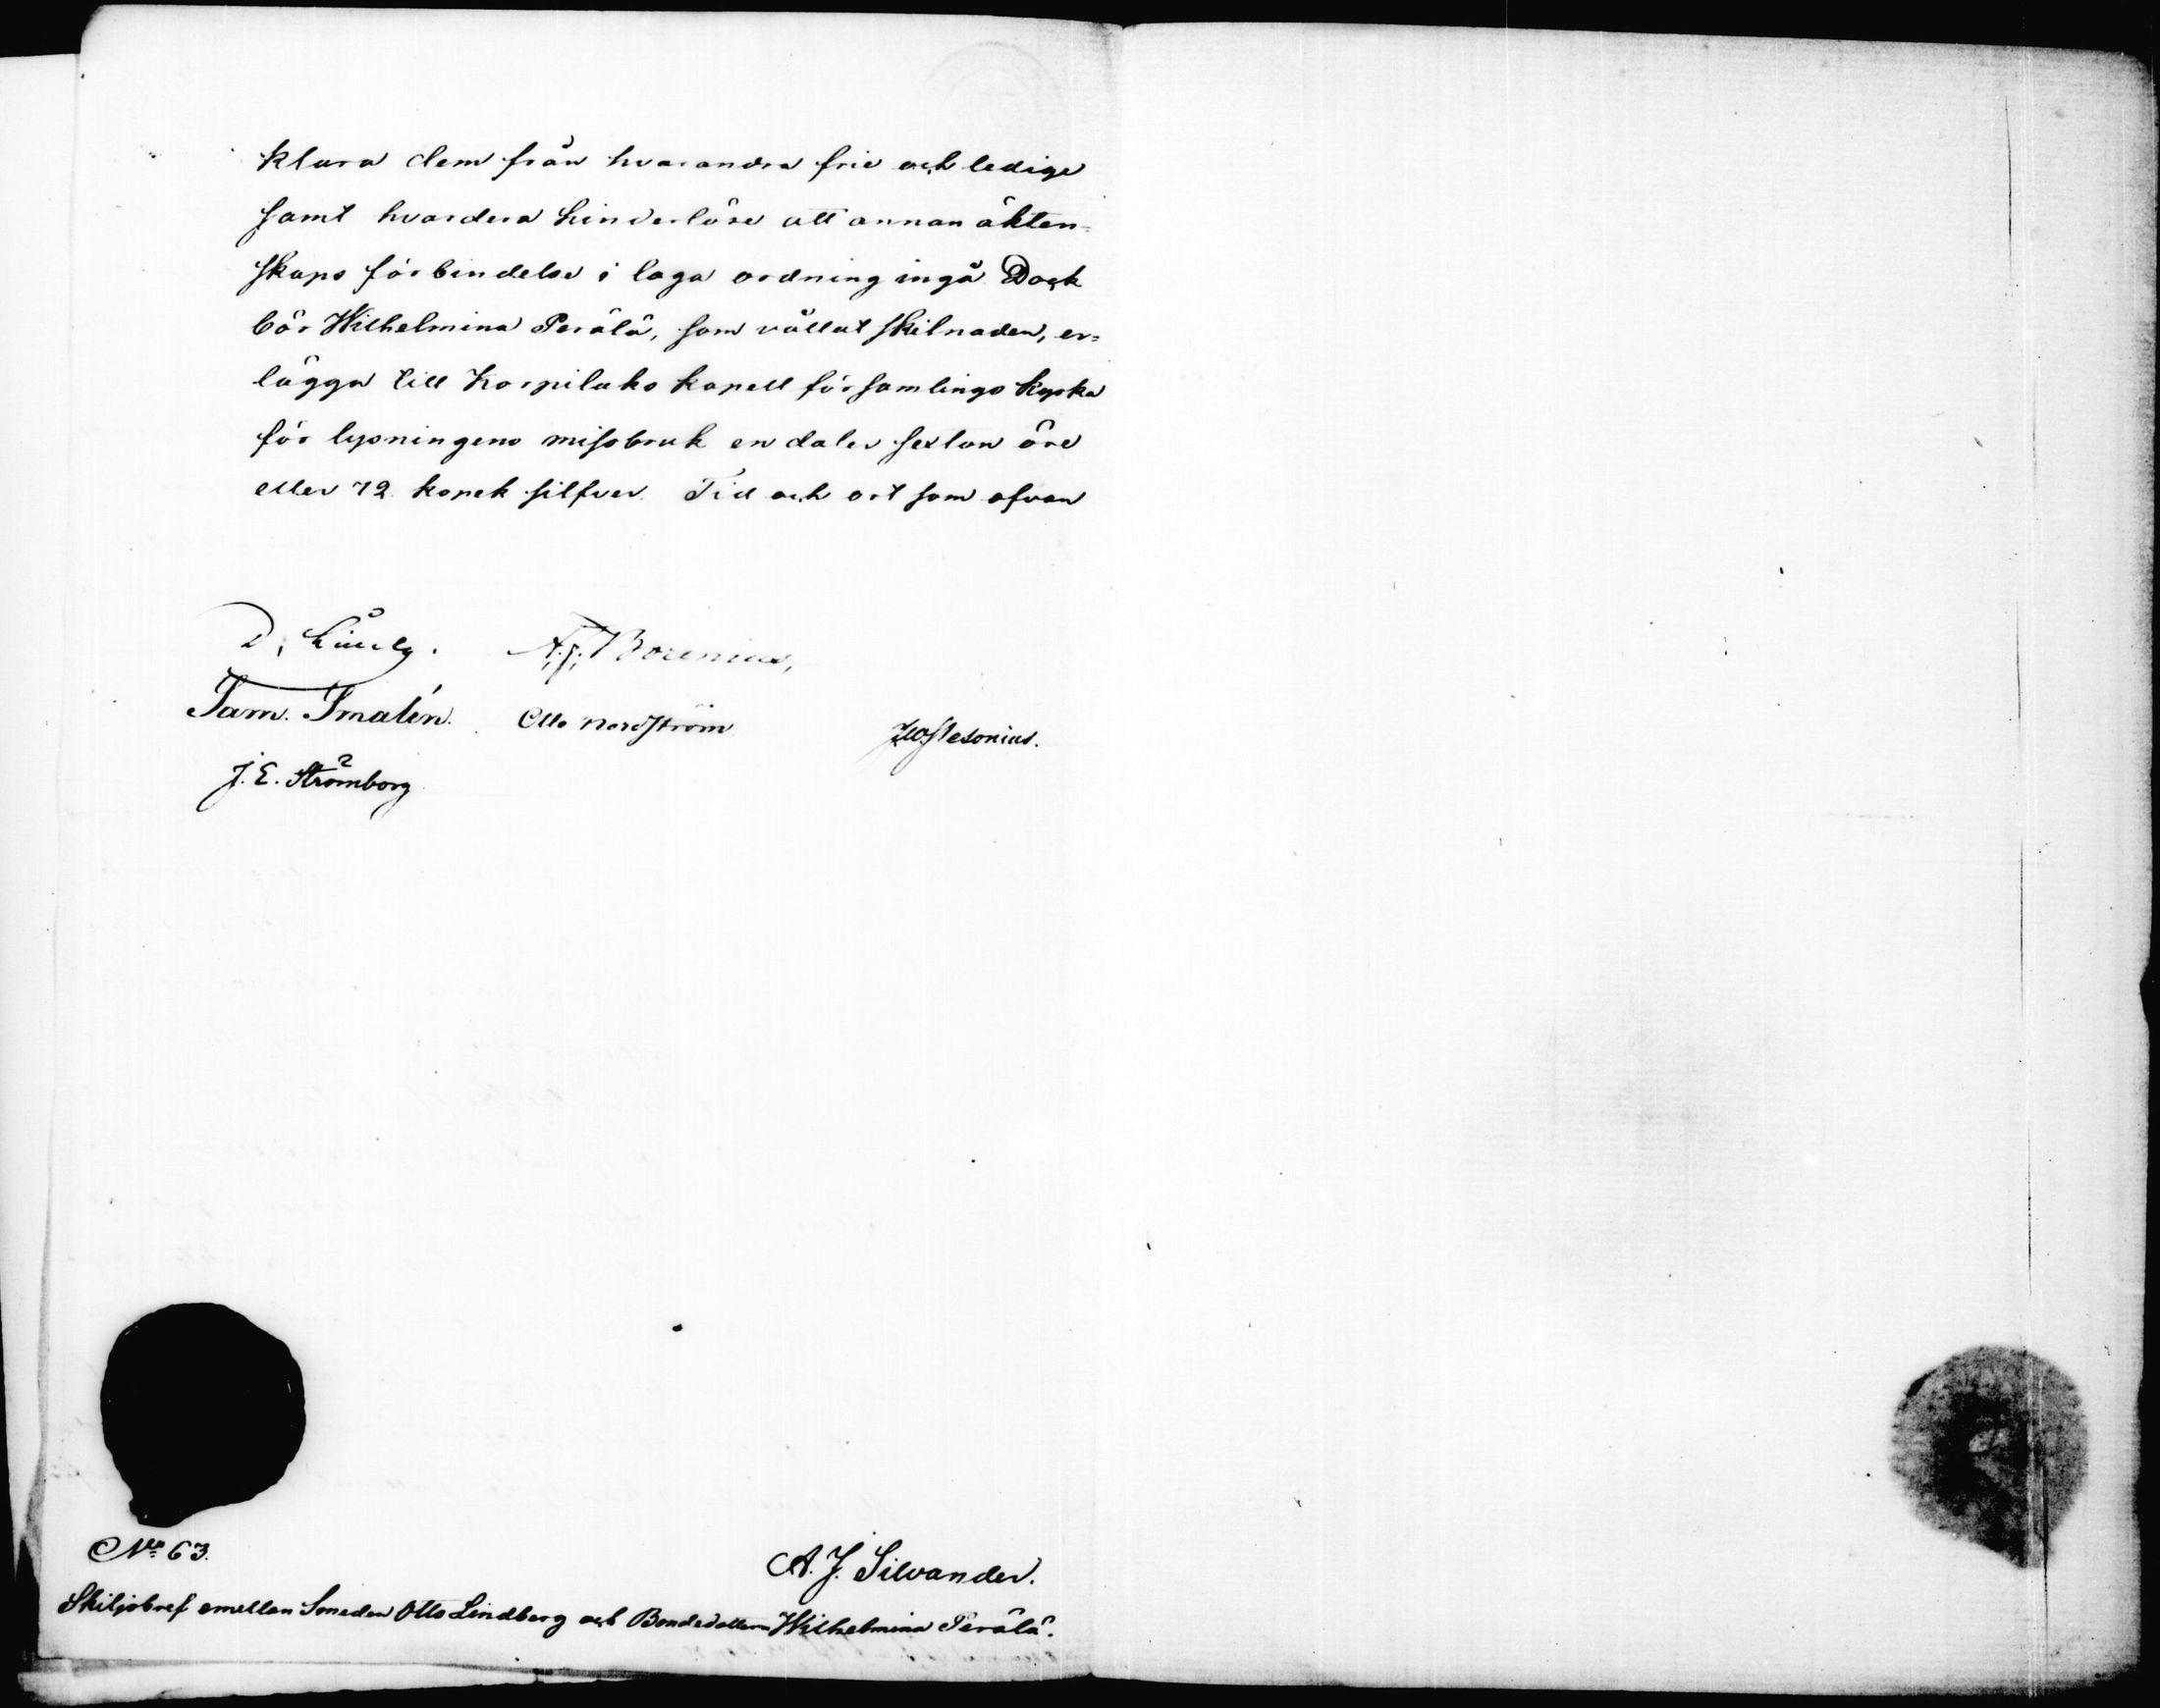 klara dem från hvarandra frie och ledige
samt hvardera hinderlöse att annan äkten=
skaps förbindelse i laga ordning ingå. Dock
bör Wilhelmina Perälä, som vållat skilnaden, er=
lägga till Korpilaks kapell församlings kyrka
för lysningens missbruk en daler sexton öre
eller 72 kopek silfver. Tid och ort som ofvan
A. J. Borenius,
Sam. Smalén.
Otto Nordström
J. E. Strömborg
No 63.
A. J. Silvander.
Skiljobref emellan Smeden Otto Lindberg och Bondedottern Wilhelmina Perälä.